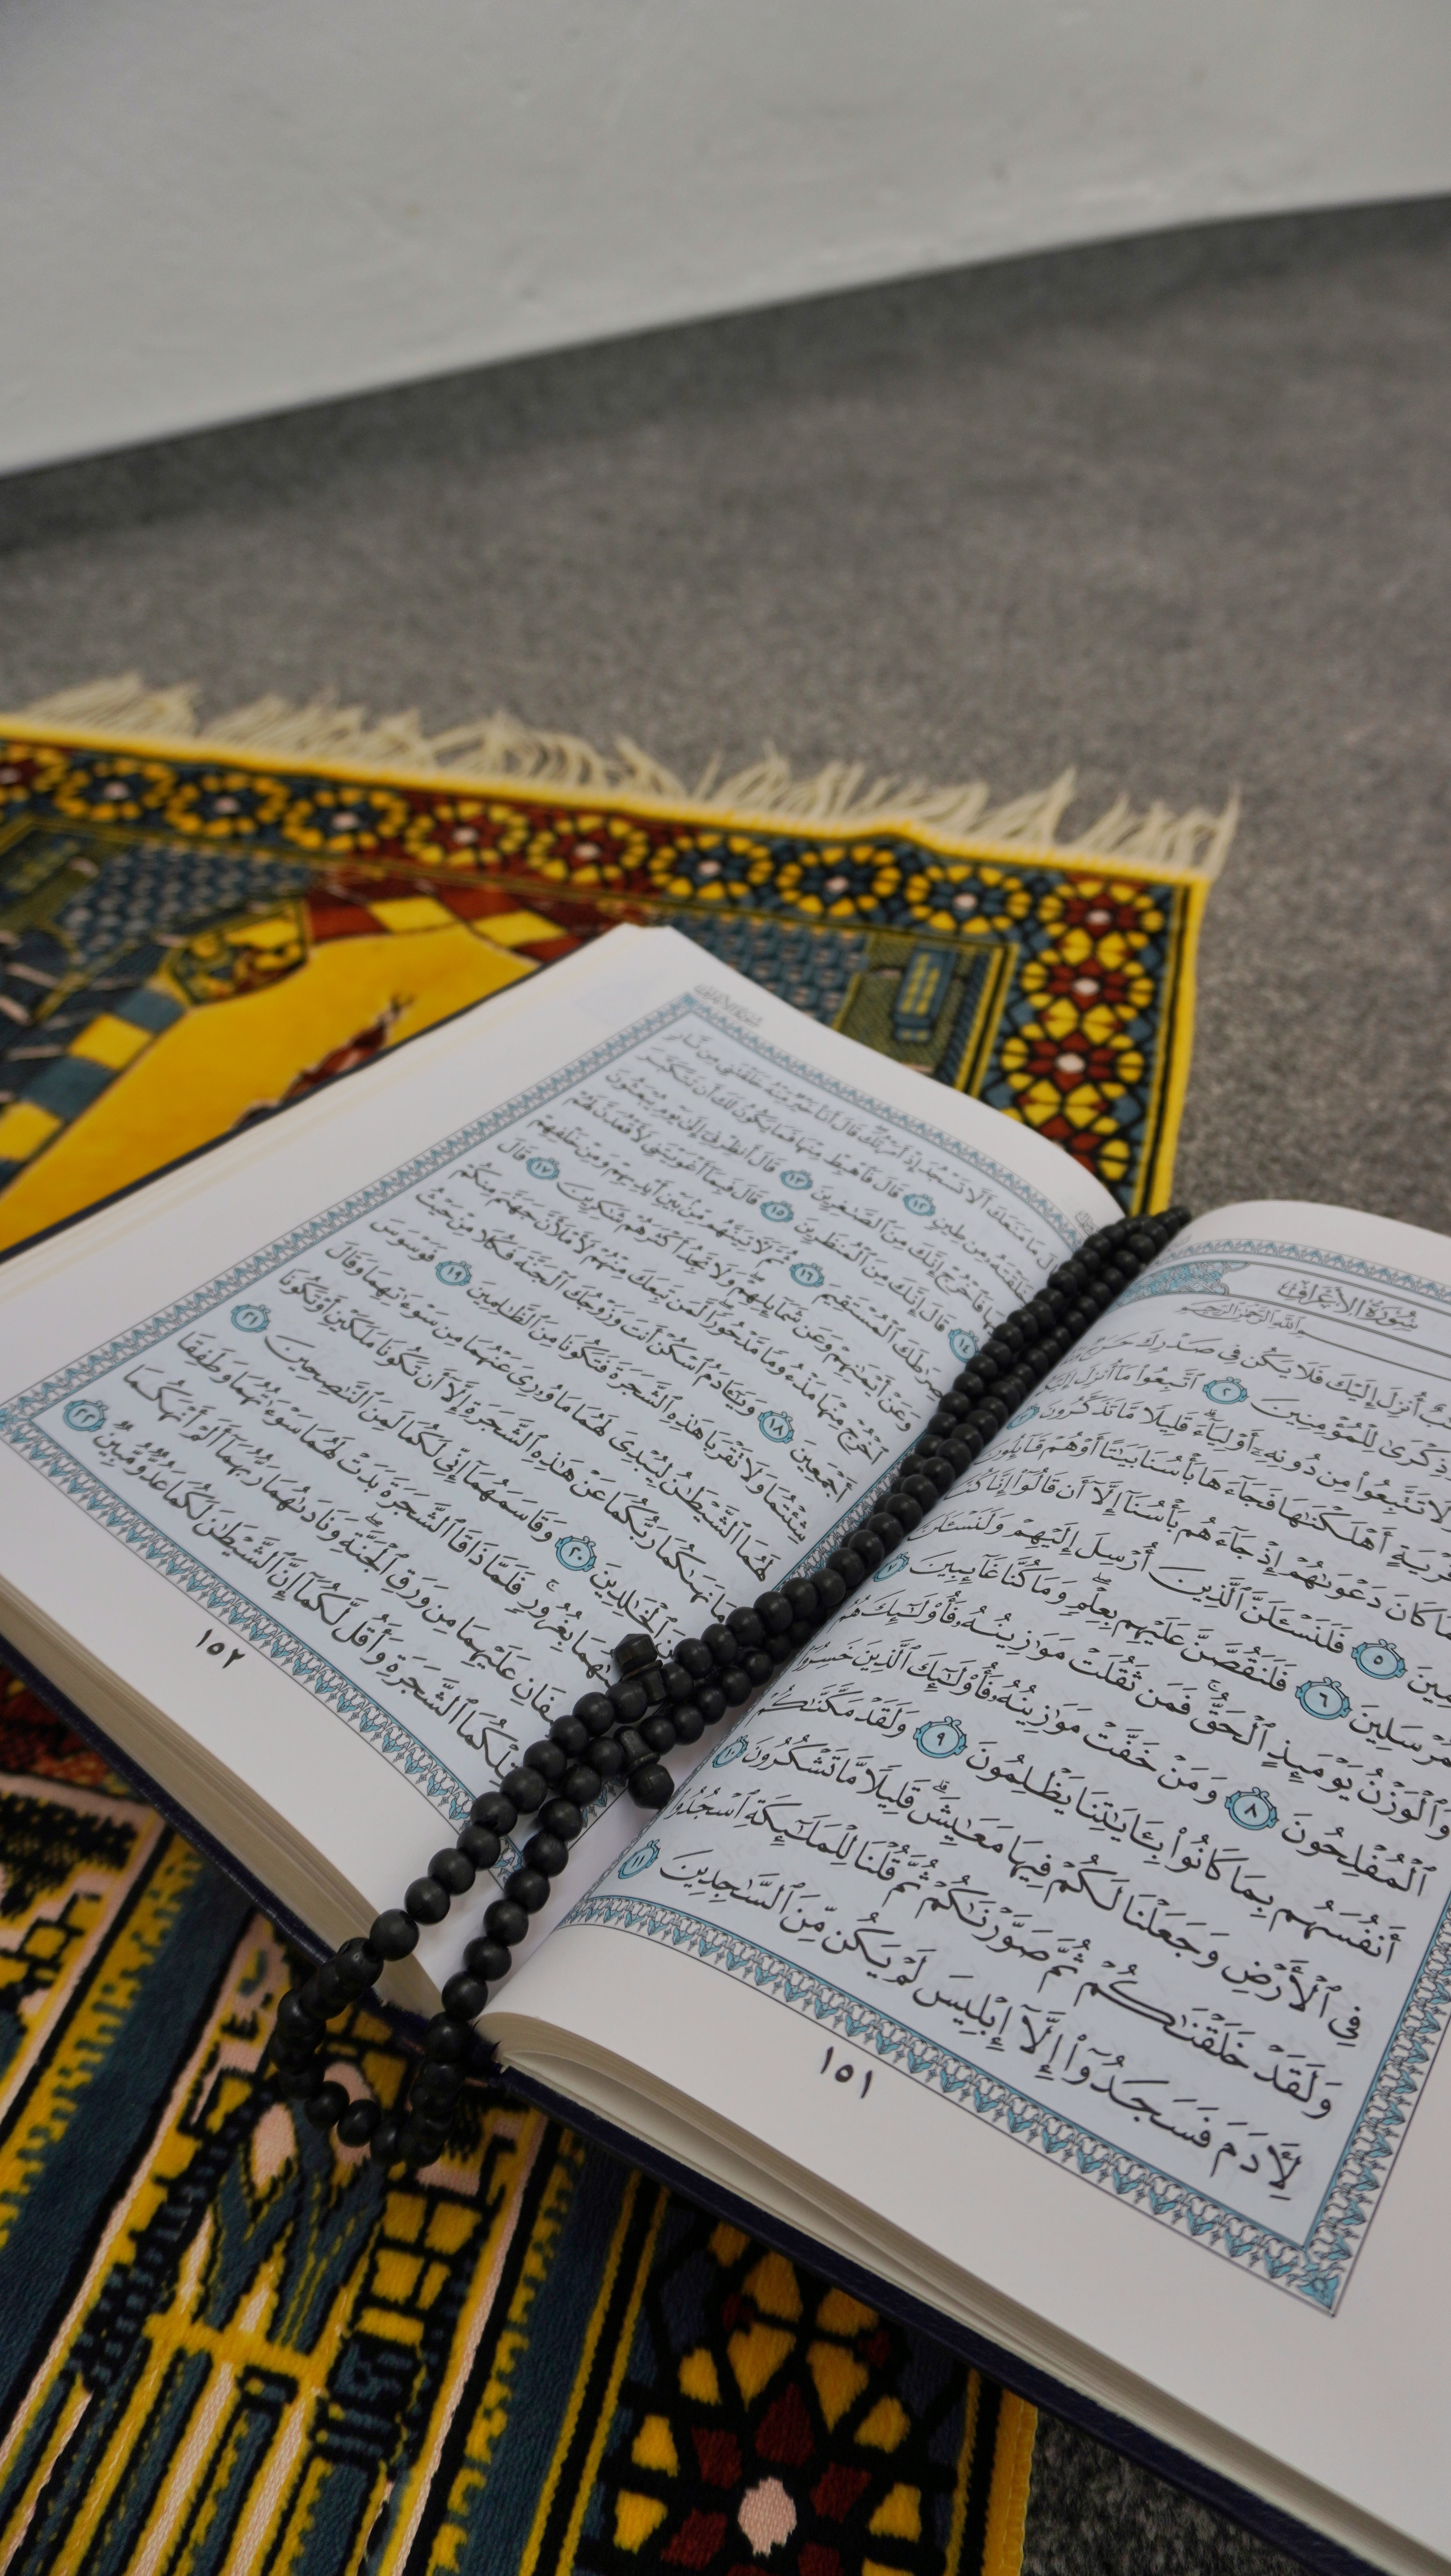 سُورَةُ الأَعْرَافِ
أُنزِلَ إِلَيْكَ فَلَا يَكُن فِي صَدْرِكَ حَرَجٌ
لِلْمُؤْمِنِينَ ٢ ٱتَّبِعُوا۟ مَآ أُنزِلَ
تَتَّبِعُوا۟ مِن دُونِهِۦٓ أَوْلِيَآءَ ۗ قَلِيلًا مَّا تَذَكَّرُونَ ٣
قَرْيَةٍ أَهْلَكْنَٰهَا فَجَآءَهَا بَأْسُنَا بَيَٰتًا أَوْ هُمْ قَآئِلُونَ
كَانَ دَعْوَىٰهُمْ إِذْ جَآءَهُم بَأْسُنَآ إِلَّآ أَن قَالُوٓا۟ إِنَّا
٥ فَلَنَسْـَٔلَنَّ ٱلَّذِينَ أُرْسِلَ إِلَيْهِمْ وَلَنَسْـَٔلَنَّ
٦ فَلَنَقُصَّنَّ عَلَيْهِم بِعِلْمٍ ۖ وَمَا كُنَّا غَآئِبِينَ ٧
وَٱلْوَزْنُ يَوْمَئِذٍ ٱلْحَقُّ ۚ فَمَن ثَقُلَتْ مَوَٰزِينُهُۥ فَأُو۟لَٰٓئِكَ هُمُ
ٱلْمُفْلِحُونَ ٨ وَمَنْ خَفَّتْ مَوَٰزِينُهُۥ فَأُو۟لَٰٓئِكَ ٱلَّذِينَ خَسِرُوٓا۟
أَنفُسَهُم بِمَا كَانُوا۟ بِـَٔايَٰتِنَا يَظْلِمُونَ ٩ وَلَقَدْ مَكَّنَّٰكُمْ
فِي ٱلْأَرْضِ وَجَعَلْنَا لَكُمْ فِيهَا مَعَٰيِشَ ۗ قَلِيلًا مَّا تَشْكُرُونَ ١٠
وَلَقَدْ خَلَقْنَٰكُمْ ثُمَّ صَوَّرْنَٰكُمْ ثُمَّ قُلْنَا لِلْمَلَٰٓئِكَةِ ٱسْجُدُوا۟
لِـَٔادَمَ فَسَجَدُوٓا۟ إِلَّآ إِبْلِيسَ لَمْ يَكُن مِّنَ ٱلسَّٰجِدِينَ ١١
١٥١
مَا مَنَعَكَ أَلَّا تَسْجُدَ إِذْ أَمَرْتُكَ ۖ قَالَ أَنَا۠ خَيْرٌ مِّنْهُ خَلَقْتَنِي مِن نَّارٍ
مِن طِينٍ ١٢ قَالَ فَٱهْبِطْ مِنْهَا فَمَا يَكُونُ لَكَ أَن تَتَكَبَّرَ
فَٱخْرُجْ إِنَّكَ مِنَ ٱلصَّٰغِرِينَ ١٣ قَالَ أَنظِرْنِيٓ إِلَىٰ يَوْمِ يُبْعَثُونَ
١٤ قَالَ إِنَّكَ مِنَ ٱلْمُنظَرِينَ ١٥ قَالَ فَبِمَآ أَغْوَيْتَنِي لَأَقْعُدَنَّ لَهُمْ
صِرَٰطَكَ ٱلْمُسْتَقِيمَ ١٦ ثُمَّ لَـَٔاتِيَنَّهُم مِّنۢ بَيْنِ أَيْدِيهِمْ وَمِنْ خَلْفِهِمْ
وَعَنْ أَيْمَٰنِهِمْ وَعَن شَمَآئِلِهِمْ ۖ وَلَا تَجِدُ أَكْثَرَهُمْ شَٰكِرِينَ ١٧ قَالَ
ٱخْرُجْ مِنْهَا مَذْءُومًا مَّدْحُورًا ۖ لَّمَن تَبِعَكَ مِنْهُمْ لَأَمْلَأَنَّ جَهَنَّمَ مِنكُمْ
أَجْمَعِينَ ١٨ وَيَٰٓـَٔادَمُ ٱسْكُنْ أَنتَ وَزَوْجُكَ ٱلْجَنَّةَ فَكُلَا مِنْ حَيْثُ
شِئْتُمَا وَلَا تَقْرَبَا هَٰذِهِ ٱلشَّجَرَةَ فَتَكُونَا مِنَ ٱلظَّٰلِمِينَ ١٩ فَوَسْوَسَ
لَهُمَا ٱلشَّيْطَٰنُ لِيُبْدِيَ لَهُمَا مَا وُۥرِيَ عَنْهُمَا مِن سَوْءَٰتِهِمَا وَقَالَ
مَا نَهَىٰكُمَا رَبُّكُمَا عَنْ هَٰذِهِ ٱلشَّجَرَةِ إِلَّآ أَن تَكُونَا مَلَكَيْنِ أَوْ تَكُونَا
ٱلْخَٰلِدِينَ ٢٠ وَقَاسَمَهُمَآ إِنِّي لَكُمَا لَمِنَ ٱلنَّٰصِحِينَ ٢١
بِغُرُورٍ ۚ فَلَمَّا ذَاقَا ٱلشَّجَرَةَ بَدَتْ لَهُمَا سَوْءَٰتُهُمَا وَطَفِقَا
عَلَيْهِمَا مِن وَرَقِ ٱلْجَنَّةِ ۖ وَنَادَىٰهُمَا رَبُّهُمَآ أَلَمْ أَنْهَكُمَا
تِلْكُمَا ٱلشَّجَرَةِ وَأَقُل لَّكُمَآ إِنَّ ٱلشَّيْطَٰنَ لَكُمَا عَدُوٌّ مُّبِينٌ ٢٢
١٥٢